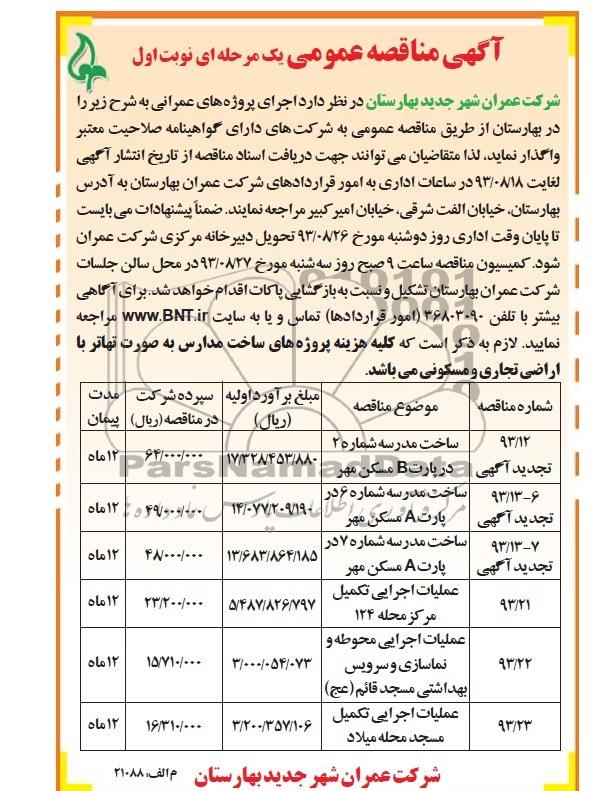 آگهی مناقصه عمومی یک مرحله ای نوبت اول
شرکت عمران شهر جدید بهارستان در نظر دارد اجرای پروژه‌های عمرانی به شرح زیر را
در بهارستان از طریق مناقصه عمومی به شرکت‌های دارای گواهینامه صلاحیت معتبر
واگذار نماید، لذا متقاضیان می توانند جهت دریافت اسناد مناقصه از تاریخ انتشار آگهی
لغایت ۹۳/۰۸/۱۸ در ساعات اداری به امور قراردادهای شرکت عمران بهارستان به آدرس
بهارستان، خیابان الفت شرقی، خیابان امیرکبیر مراجعه نمایند. ضمناً پیشنهادات می بایست
تا پایان وقت اداری روز دوشنبه مورخ ۹۳/۰۸/۲۶ تحویل دبیرخانه مرکزی شرکت عمران
شود. کمیسیون مناقصه ساعت ۹ صبح روز سه‌شنبه مورخ ۹۳/۰۸/۲۷ در محل سالن جلسات
شرکت عمران بهارستان تشکیل و نسبت به بازگشایی پاکات اقدام خواهد شد. برای آگاهی
بیشتر با تلفن ۰۹۰-۳۶۸۰۳ (امور قراردادها) تماس و یا به سایت www.BNT.ir مراجعه
نمایید. لازم به ذکر است که کلیه هزینه پروژه‌های ساخت مدارس به صورت تهاتر با
اراضی تجاری و مسکونی می باشد.
شماره مناقصه موضوع مناقصه مبلغ برآورد اولیه (ریال) سپرده شرکت در مناقصه (ریال) مدت پیمان
۹۳/۱۲ تجدید آگهی ساخت مدرسه شماره ۲ در پارت B مسکن مهر ۱۷/۳۲۸/۴۵۳/۸۸۰ ۶۴/۰۰۰/۰۰۰ ۱۲ ماه
۹۳/۱۳-۶ تجدید آگهی ساخت مدرسه شماره ۶ در پارت A مسکن مهر ۱۴/۰۷۷/۲۰۹/۱۹۰ ۴۹/۰۰۰/۰۰۰ ۱۲ ماه
۹۳/۱۳-۷ تجدید آگهی ساخت مدرسه شماره ۷ در پارت A مسکن مهر ۱۳/۶۸۳/۸۶۴/۱۸۵ ۴۸/۰۰۰/۰۰۰ ۱۲ ماه
۹۳/۲۱ عملیات اجرایی تکمیل مرکز محله ۱۲۴ ۵/۴۸۷/۸۲۶/۷۹۷ ۲۳/۲۰۰/۰۰۰ ۱۲ ماه
۹۳/۲۲ عملیات اجرایی محوطه و نماسازی و سرویس بهداشتی مسجد قائم (عج) ۳/۰۰۰/۰۵۴/۰۷۳ ۱۵/۷۱۰/۰۰۰ ۱۲ ماه
۹۳/۲۳ عملیات اجرایی تکمیل مسجد محله میلاد ۳/۲۰۰/۳۵۷/۱۰۶ ۱۶/۳۱۰/۰۰۰ ۱۲ ماه
ParsNamadData
شرکت عمران شهر جدید بهارستان
م الف: ۲۱۰۸۸